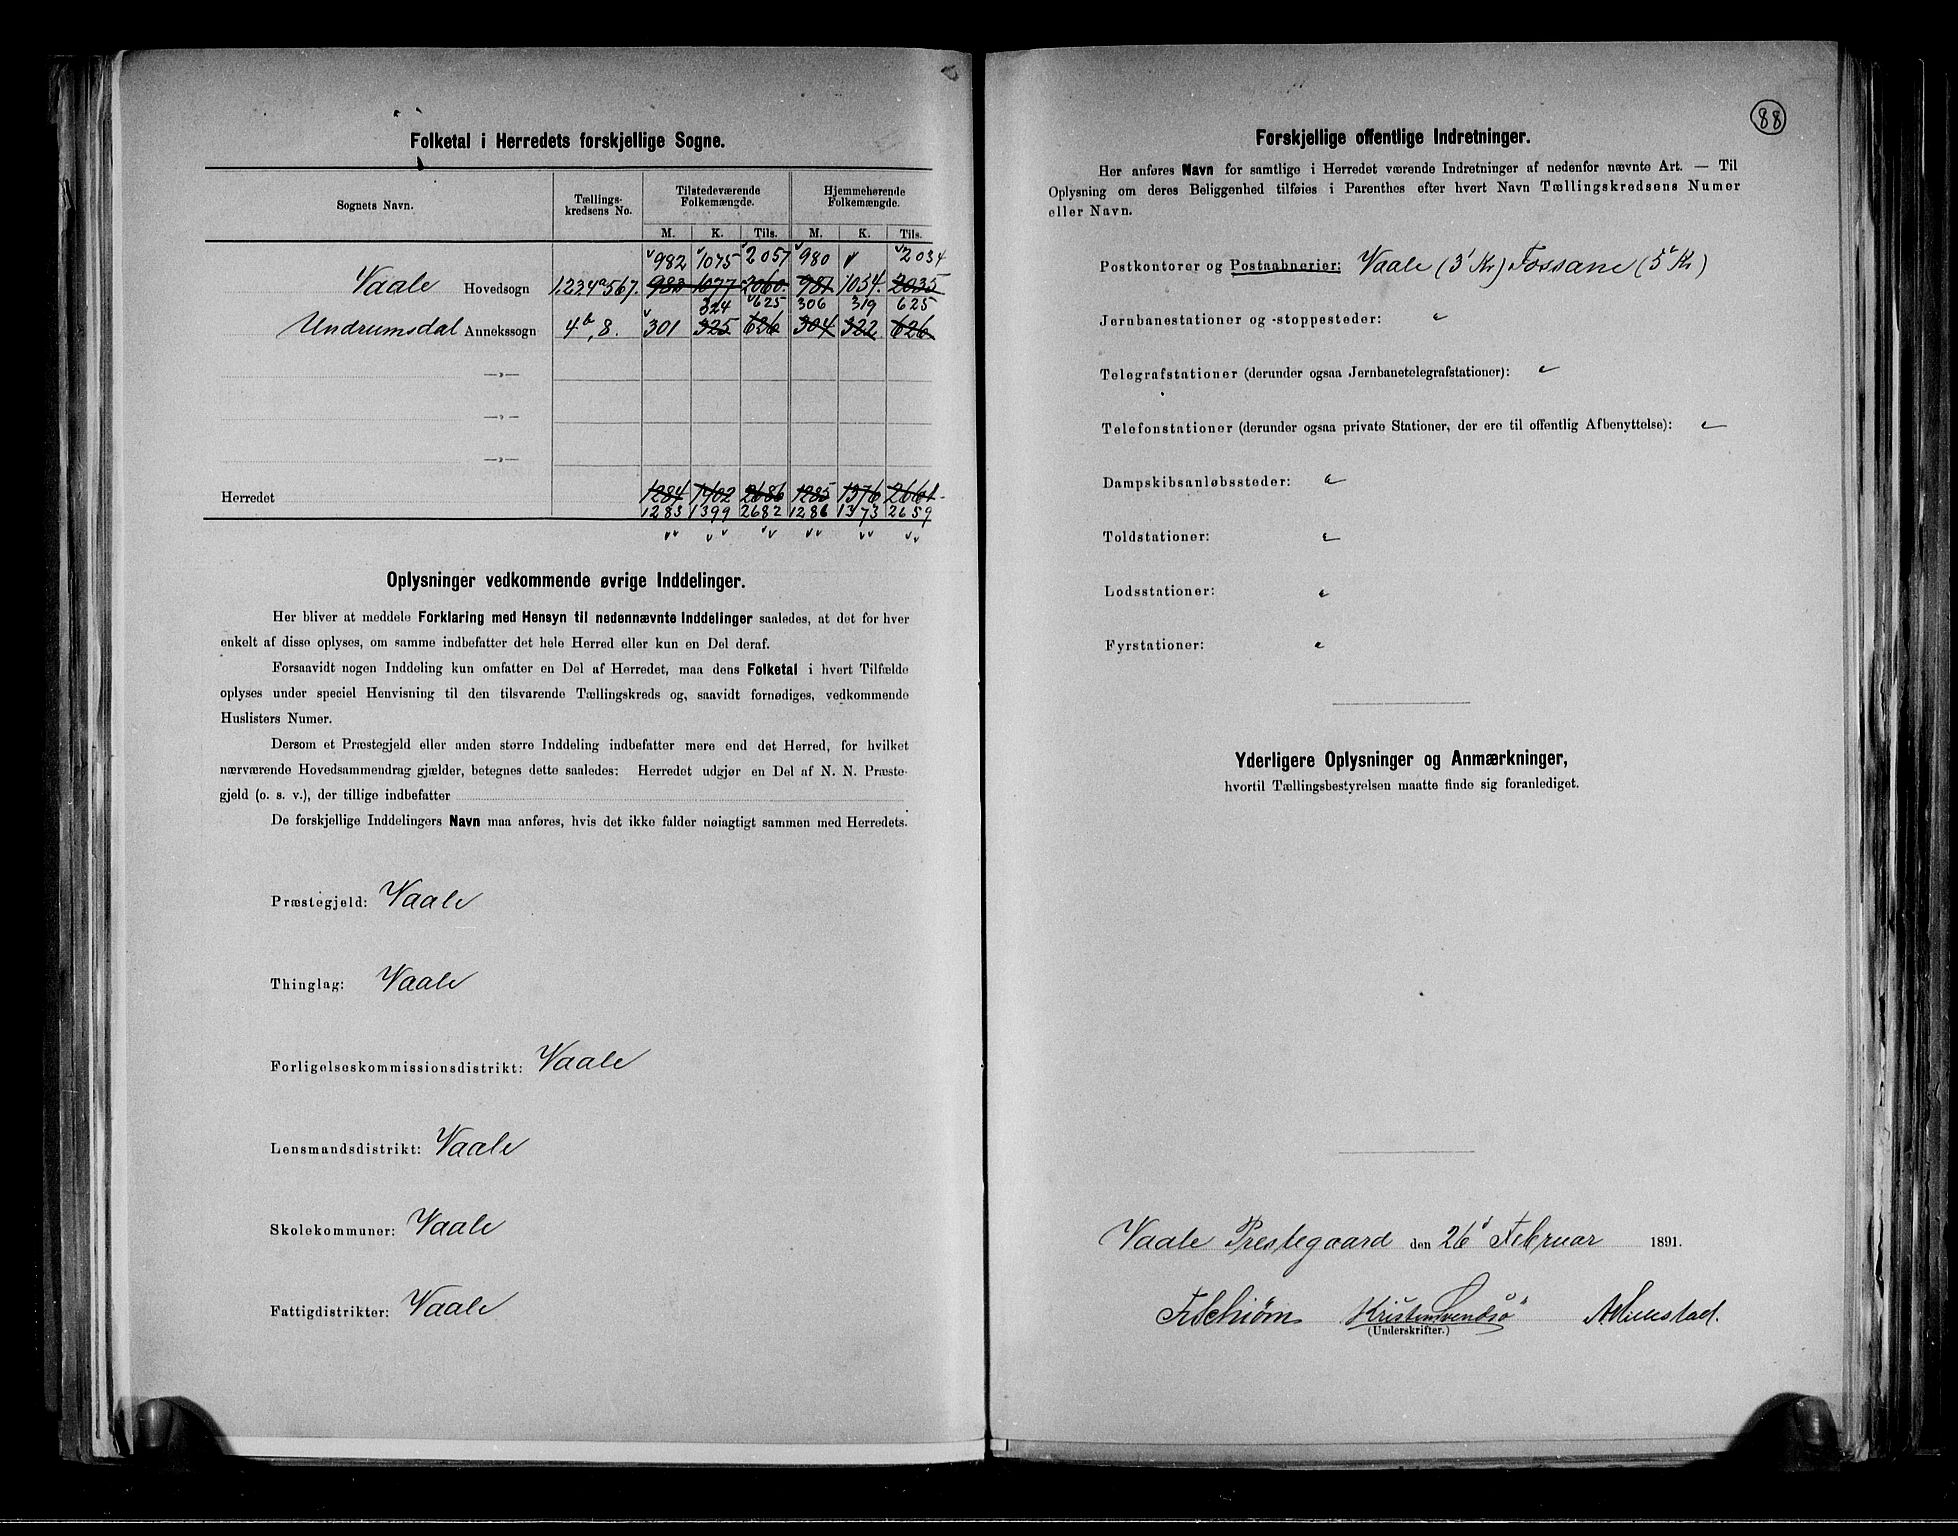 Folketal i Herredets forskjellige Sogne.
Sognets Navn. Tællings-kredsens No. Tilstedeværende Folkemængde. Hjemmehørende Folkemængde.
M. K. Tils. M. K. Tils.
982 1075 2057 980 2034
Vaale Hovedsogn 1.2.3.4a 5.6.7. 983 1077 2060 981 1054. 2035
324 625 306 319 625
Undrumsdal Annekssogn 4b, 8. 301 325 626 304 322 626
—»—
—»—
—»—
Herredet 1284 1402 2686 1285 1376 2661
1283 1399 2682 1286 1373 2659
Oplysninger vedkommende øvrige Inddelinger.
Her bliver at meddele Forklaring med Hensyn til nedennævnte Inddelinger saaledes, at det for hver
enkelt af disse oplyses, om samme indbefatter det hele Herred eller kun en Del deraf.
Forsaavidt nogen Inddeling kun omfatter en Del af Herredet, maa dens Folketal i hvert Tilfælde
oplyses under speciel Henvisning til den tilsvarende Tællingskreds og, saavidt fornødiges, vedkommende
Huslisters Numer.
Dersom et Præstegjeld eller anden større Inddeling indbefatter mere end det Herred, for hvilket
nærværende Hovedsammendrag gjælder, betegnes dette saaledes: Herredet udgjør en Del af N. N. Præste-
gjeld (o. s. v.), der tillige indbefatter
De forskjellige Inddelingers Navn maa anføres, hvis det ikke falder nøiagtigt sammen med Herredets.
Præstegjeld: Vaale
Thinglag: Vaale
Forligelseskommissionsdistrikt: Vaale
Lensmandsdistrikt: Vaale
Skolekommuner: Vaale
Fattigdistrikter: Vaale
88
Forskjellige offentlige Indretninger.
Her anføres Navn for samtlige i Herredet værende Indretninger af nedenfor nævnte Art. — Til
Oplysning om deres Beliggenhed tilføies i Parenthes efter hvert Navn Tællingskredsens Numer
eller Navn.
Postkontorer og Postaabnerier: Vaale (3 Kr) Fossane (5 Kr)
Jernbanestationer og -stoppesteder:
Telegrafstationer (derunder ogsaa Jernbanetelegrafstationer):
Telefonstationer (derunder ogsaa private Stationer, der ere til offentlig Afbenyttelse):
Dampskibsanløbssteder:
Toldstationer:
Lodsstationer:
Fyrstationer:
Yderligere Oplysninger og Anmærkninger,
hvortil Tællingsbestyrelsen maatte finde sig foranlediget.
Vaale Prestegaard den 26 Februar 1891.
F Schiøm
(Underskrifter.)